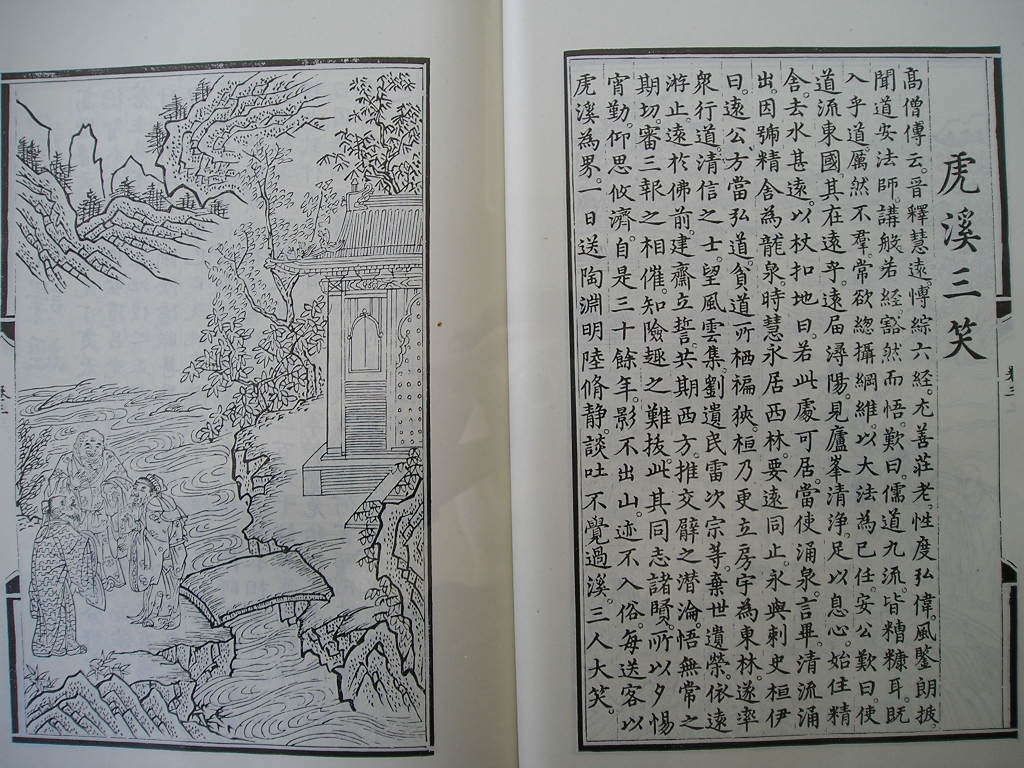 虎溪三笑
高僧傳云。晉釋慧遠。博綜六經。尤善莊老。性度弘偉。風鑒朗拔。
聞道安法師。講般若經。豁然而悟。歎曰。儒道九流。皆糟糠耳。既
入乎道。厲然不羣。常欲總攝綱維。以大法為己任。安公歎曰。使
道流東國。其在遠乎。遠届潯陽。見廬峯清淨。足以息心。始住精
舍。去水甚遠。以杖扣地曰。若此處可居。當使涌泉。言畢。清流涌
出。因號精舍為龍泉。時慧永居西林。要遠同止。永與刺史桓伊
曰。遠公方當弘道。貧道所栖褊狹。桓乃更立房宇為東林。遂率
衆行道。清信之士。望風雲集。劉遺民雷次宗等。棄世遺榮。依遠
游止。遠於佛前。建齋立誓。共期西方。推交臂之潛淪。悟無常之
期切。審三報之相催。知險趣之難拔。此其同志諸賢。所以夕惕
宵勤。仰思攸濟。自是三十餘年。影不出山。迹不入俗。每送客以
虎溪為界。一日送陶淵明陸脩静。談吐不覺過溪。三人大笑。
卷三